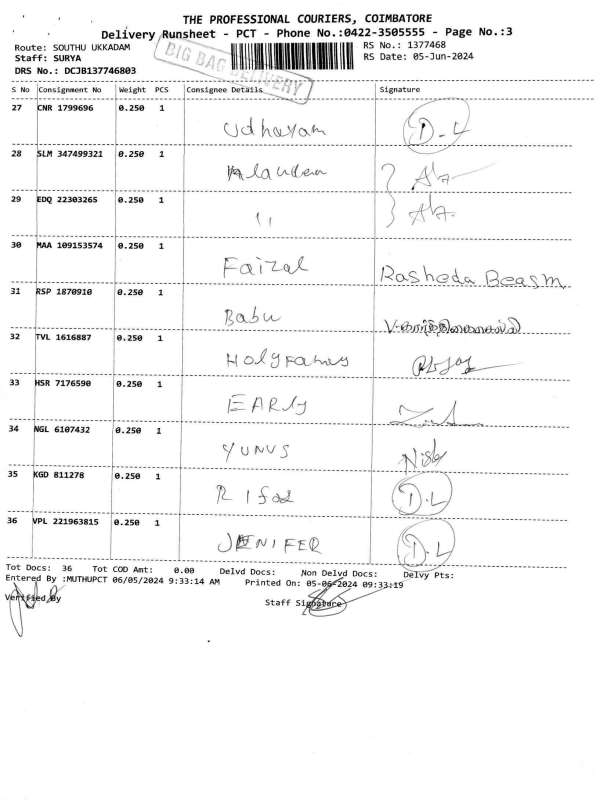 THE PROFESSIONAL COURIERS, COIMBATORE
Delivery Runsheet - PCT - Phone No.:0422-3505555 - Page No.:3
Route: SOUTHU UKKADAM
RS No.: 1377468
Staff: SURYA
RS Date: 05-Jun-2024
DRS No.: DCJB137746803
BIG BAG DELIVERY
S No Consignment No Weight PCS Consignee Details Signature
27 CNR 1799696 0.250 1 Udhayam D.L
28 SLM 347499321 0.250 1
29 EDQ 22303265 0.250 1 11
30 MAA 109153574 0.250 1 Faizal Rasheda Beagm
31 RSP 1870910 0.250 1 Babu
32 TVL 1616887 0.250 1 Holyfamey
33 HSR 7176590 0.250 1 EARly
34 NGL 6107432 0.250 1 YUNUS
35 KGD 811278 0.250 1 Rifad D.L
36 VPL 221963815 0.250 1 JENIFER D.L
Tot Docs: 36 Tot COD Amt: 0.00 Delvd Docs: Non Delvd Docs: Delvy Pts:
Entered By :MUTHUPCT 06/05/2024 9:33:14 AM Printed On: 05-06-2024 09:33:19
Verified By
Staff Signature